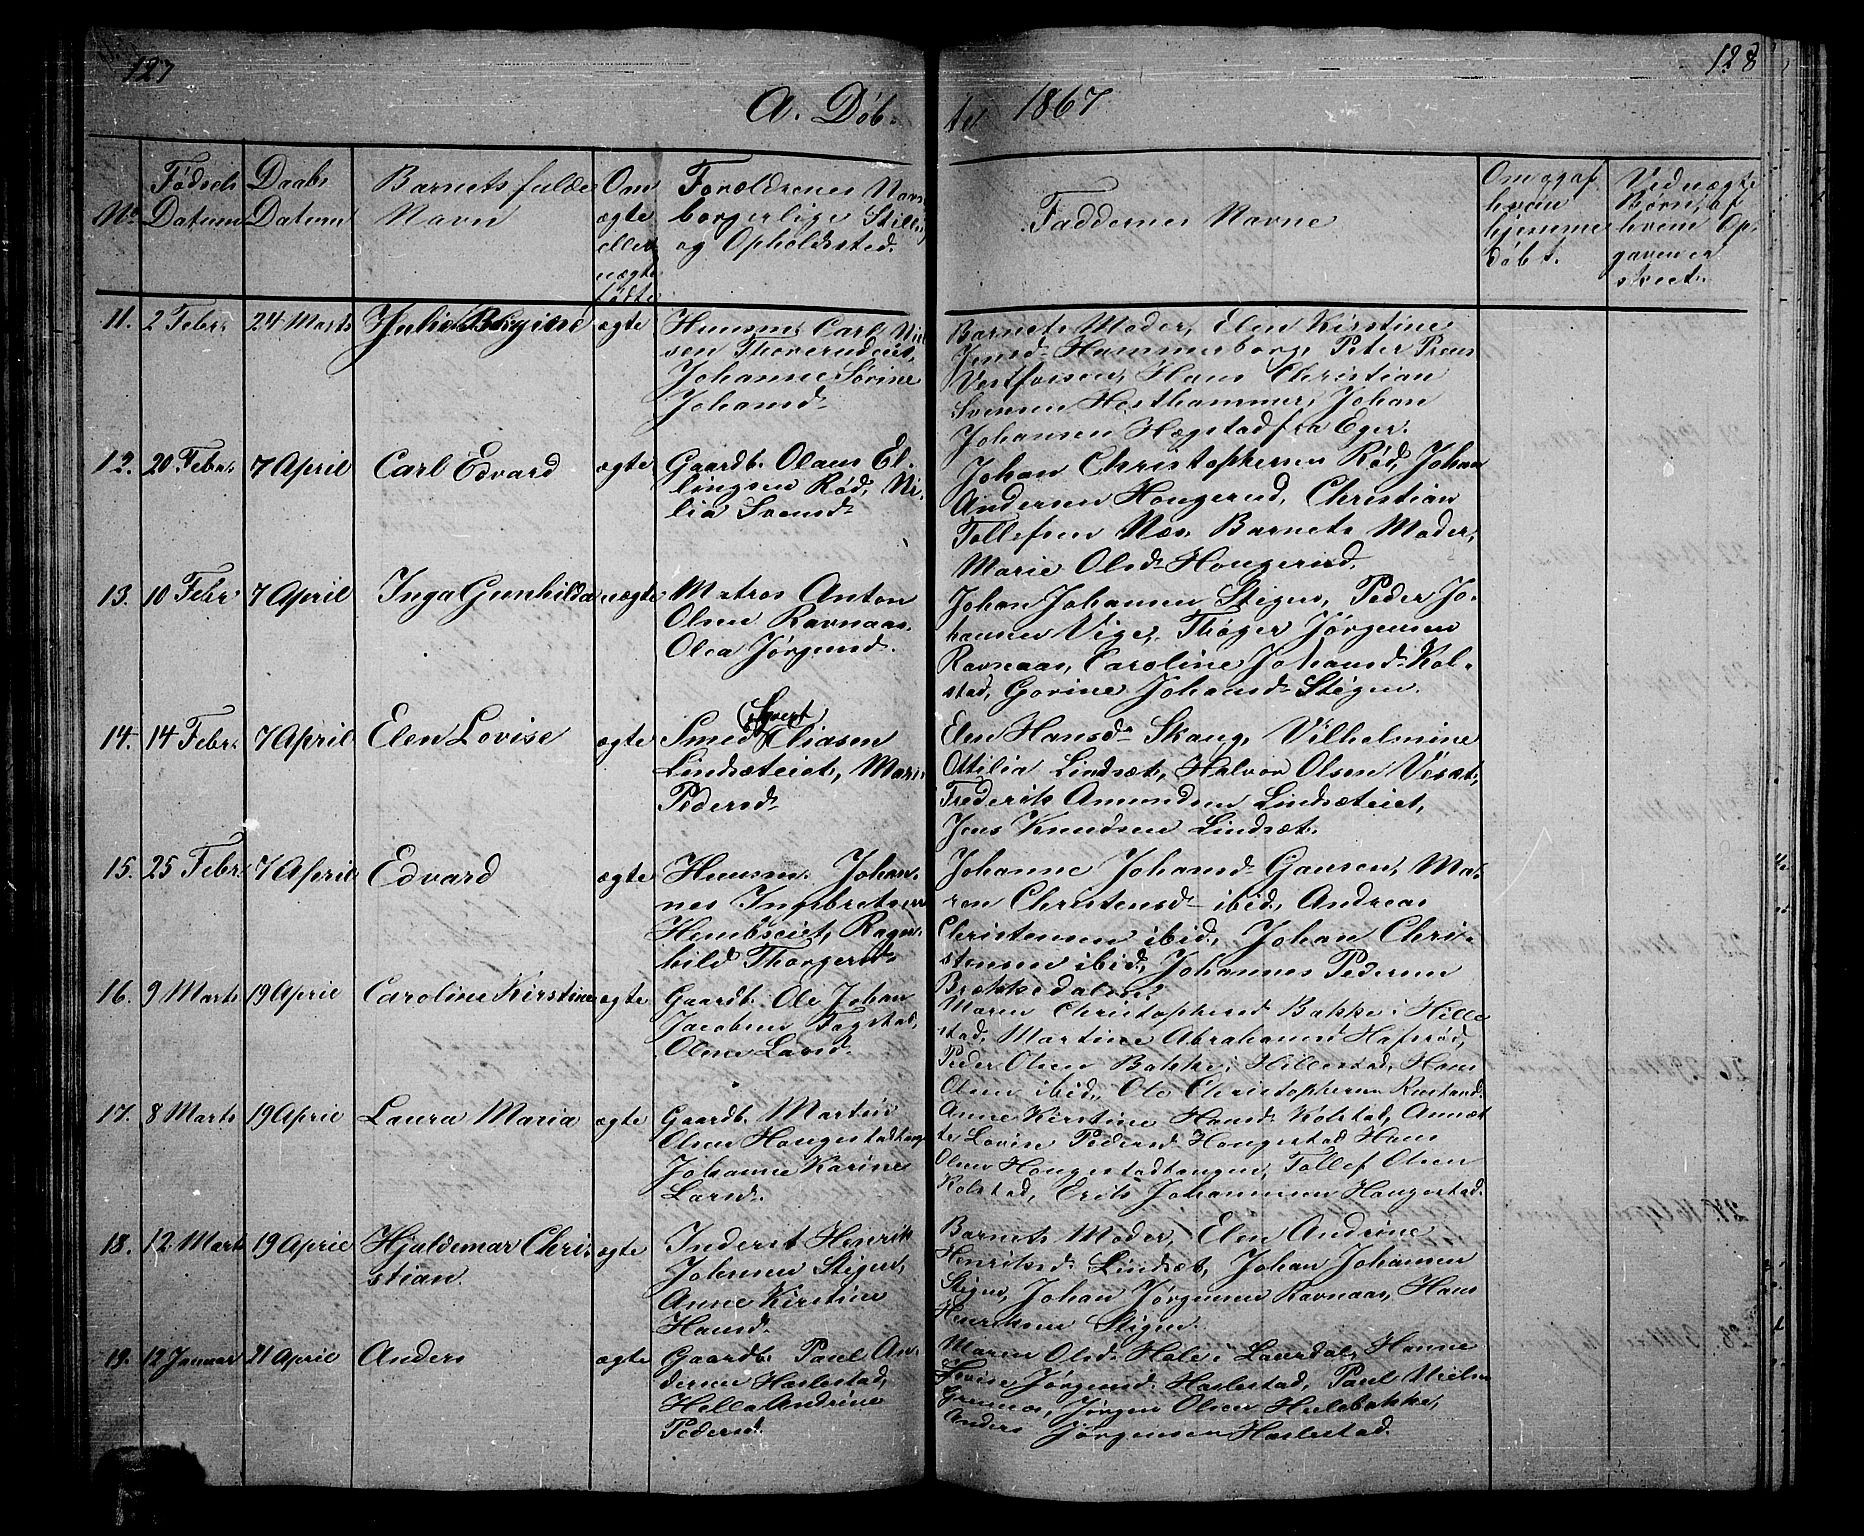 127
128
A. Døb-
te 1867
No
Fødsels Datum
Daabs Datum
Barnets fulde Navn
Om ægte eller uægte født
Forældrenes Navn, borgerlige Stilling og Opholdssted.
Faddernes Navne
Om og af hvem hjemmedøbt.
Ved uægte Børn, af hvem Opgaven er skeet.
11. 2 Febr. 24 Marts Julie Bergine ægte Huusm. Carl Niel-
sen Thorerudeiet,
Johanne Sørine
Johansd.
Barnets Moder, Elen Kirstine
Jensd. Hammerborg, Peter Prens
Vestfossen, Hans Christian
Svensen Hesthammer, Johan
Johansen Hægstad fra Eger.
12. 20 Febr. 7 April Carl Edvard ægte Gaardb. Olaus El-
lingsen Rød, Ni-
lia Svensd.
Johan Christophersen Rød, Johan
Andersen Hougerud, Christian
Tollefsen Næs, Barnets Moder,
Marie Olsd. Hougerud.
13. 10 Febr 7 April Inga Gunhilda uægte Matros Anton
Olsen Ravnaas.
Olea Jørgensd.
Johan Johansen Stigen, Peder Jo-
hansen Vige, Thøger Jørgensen
Ravnaas, Caroline Johansd. Kol-
stad, Gorine Johansd. Stigen.
14. 14 Febr. 7 April Elen Lovise ægte Smed (Syvert) Eliasen
Lindsæteiet, Mari
Pedersd.
Elen Hansd. Skaug, Vilhelmine
Ottilia Lindsæt, Halvor Olsen Vesæt,
Frederik Amundsen Lindsæteiet,
Jens Knudsen Lindsæt.
15. 25 Febr. 7 April Edvard ægte Huusm. Johan-
nes Ingebretsen
Hembseiet, Ragn-
hild Thorgersd.
Johanne Johansd. Gausen, Ma-
ren Christensd. ibid, Andreas
Christensen ibid, Johan Chri-
stensen ibid, Johannes Pedersen
Brækkedalen.
16. 9 Marts 19 April Caroline Kirstine ægte Gaardb. Ole Johan
Jacobsen Fogstad,
Olene Larsd.
Maren Christophersd Bakke i Hille-
stad, Martine Abrahamsd Hafsrød,
Peder Olsen Bakke i Hillestad, Hans
Olsen ibid, Ole Christophersen Rustand.
17. 8 Marts 19 April Laura Maria ægte Gaardb. Martin
Olsen Hougestadtangen
Johanne Karine
Larsd.
Anne Kirstine Hansd. Kolstad, Annet-
te Lovise Pedersd. Hougestad Hans
Olsen Hougestadtangen, Tollef Olsen
Kolstad, Erik Johannesen Hougestad.
18. 12 Marts 19 April Hjaldemar Chri-
stian.
ægte Inderst Henrik
Johnsen Stigen,
Anne Kirstine
Hansd.
Barnets Moder, Elen Andrine
Henriksd. Lindsæt, Johan Johansen
Stigen, Johan Jørgensen Ravnaas, Hans
Henriksen Stigen.
19. 12 Januar 21 April Anders ægte Gaardb. Paul An-
dersen Haslestad,
Helle Andrine
Pedersd.
Maren Olsd. Hole i Laurdal, Hanne
Lovise Jørgensd. Haslestad, Paul Nielsen
Grennes, Jørgen Olsen Hulebakke,
Anders Jørgensen Haslestad.